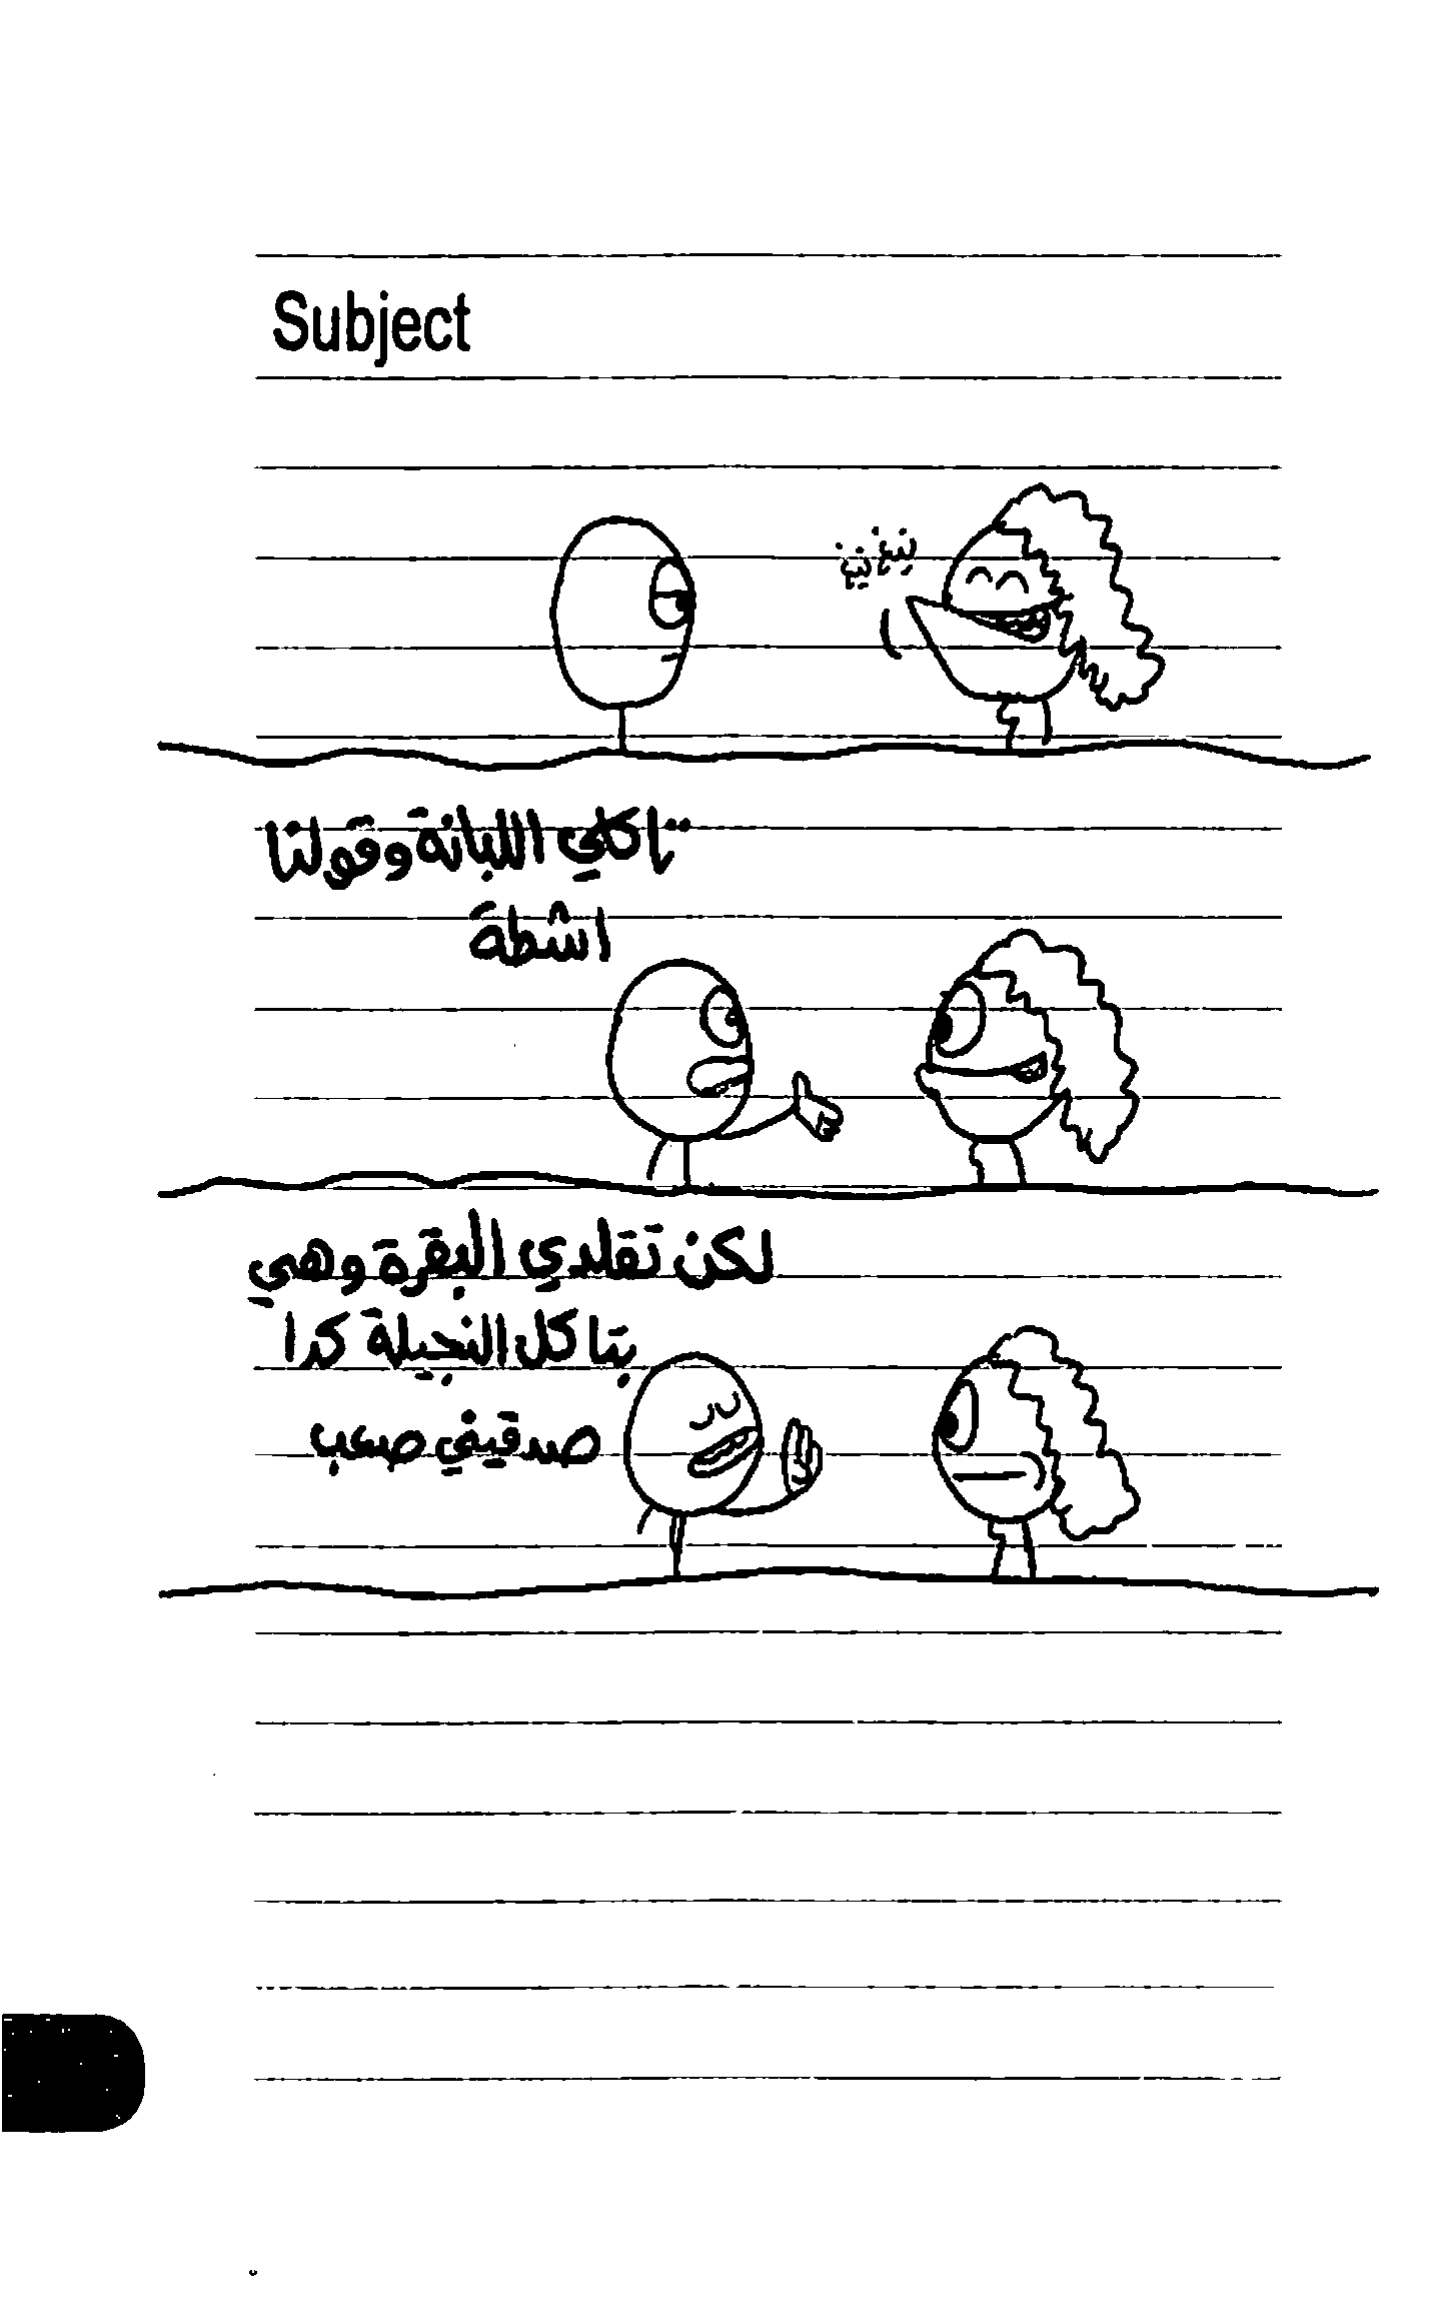 Subject
تاكلي اللبانة وقولنا
اشطة
لكن تقلدي البقرة وهي
بتاكل النجيلة كدا
صدقيني صعب